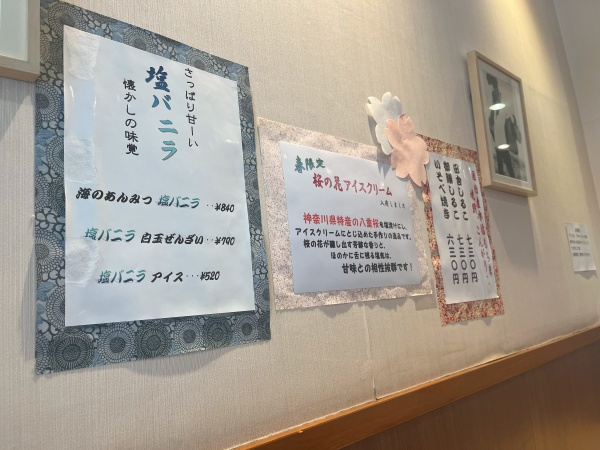 さっぱり甘ーい
塩バニラ
懐かしの味覚
海のあんみつ 塩バニラ ‥¥840
塩バニラ 白玉ぜんざい‥¥790
塩バニラ アイス‥‥¥520
春限定
桜の花アイスクリーム
入荷しました
神奈川県特産の八重桜を塩漬けにし、
アイスクリームにとじ込めた手作りの逸品です。
桜の花が醸し出す芳醇な香りと、
ほのかに舌に残る塩気は、
甘味との相性抜群です!
田舎しるこ 七三〇円
御膳しるこ 七三〇円
いそべ焼き 六三〇円